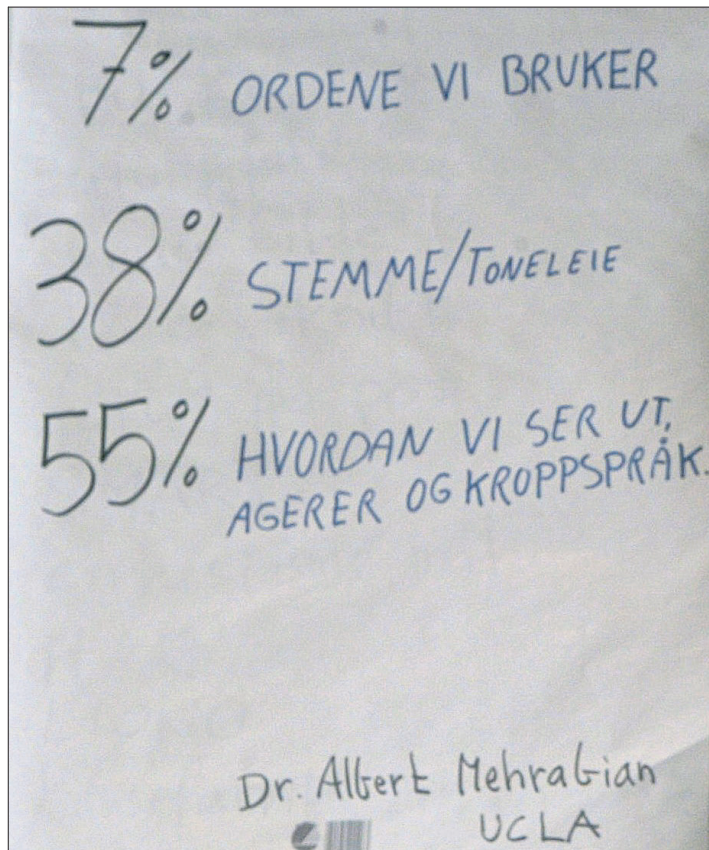 7% ORDENE VI BRUKER
38% STEMME/TONELEIE
55% HVORDAN VI SER UT,
AGERER OG KROPPSPRÅK.
Dr. Albert Mehrabian
UCLA